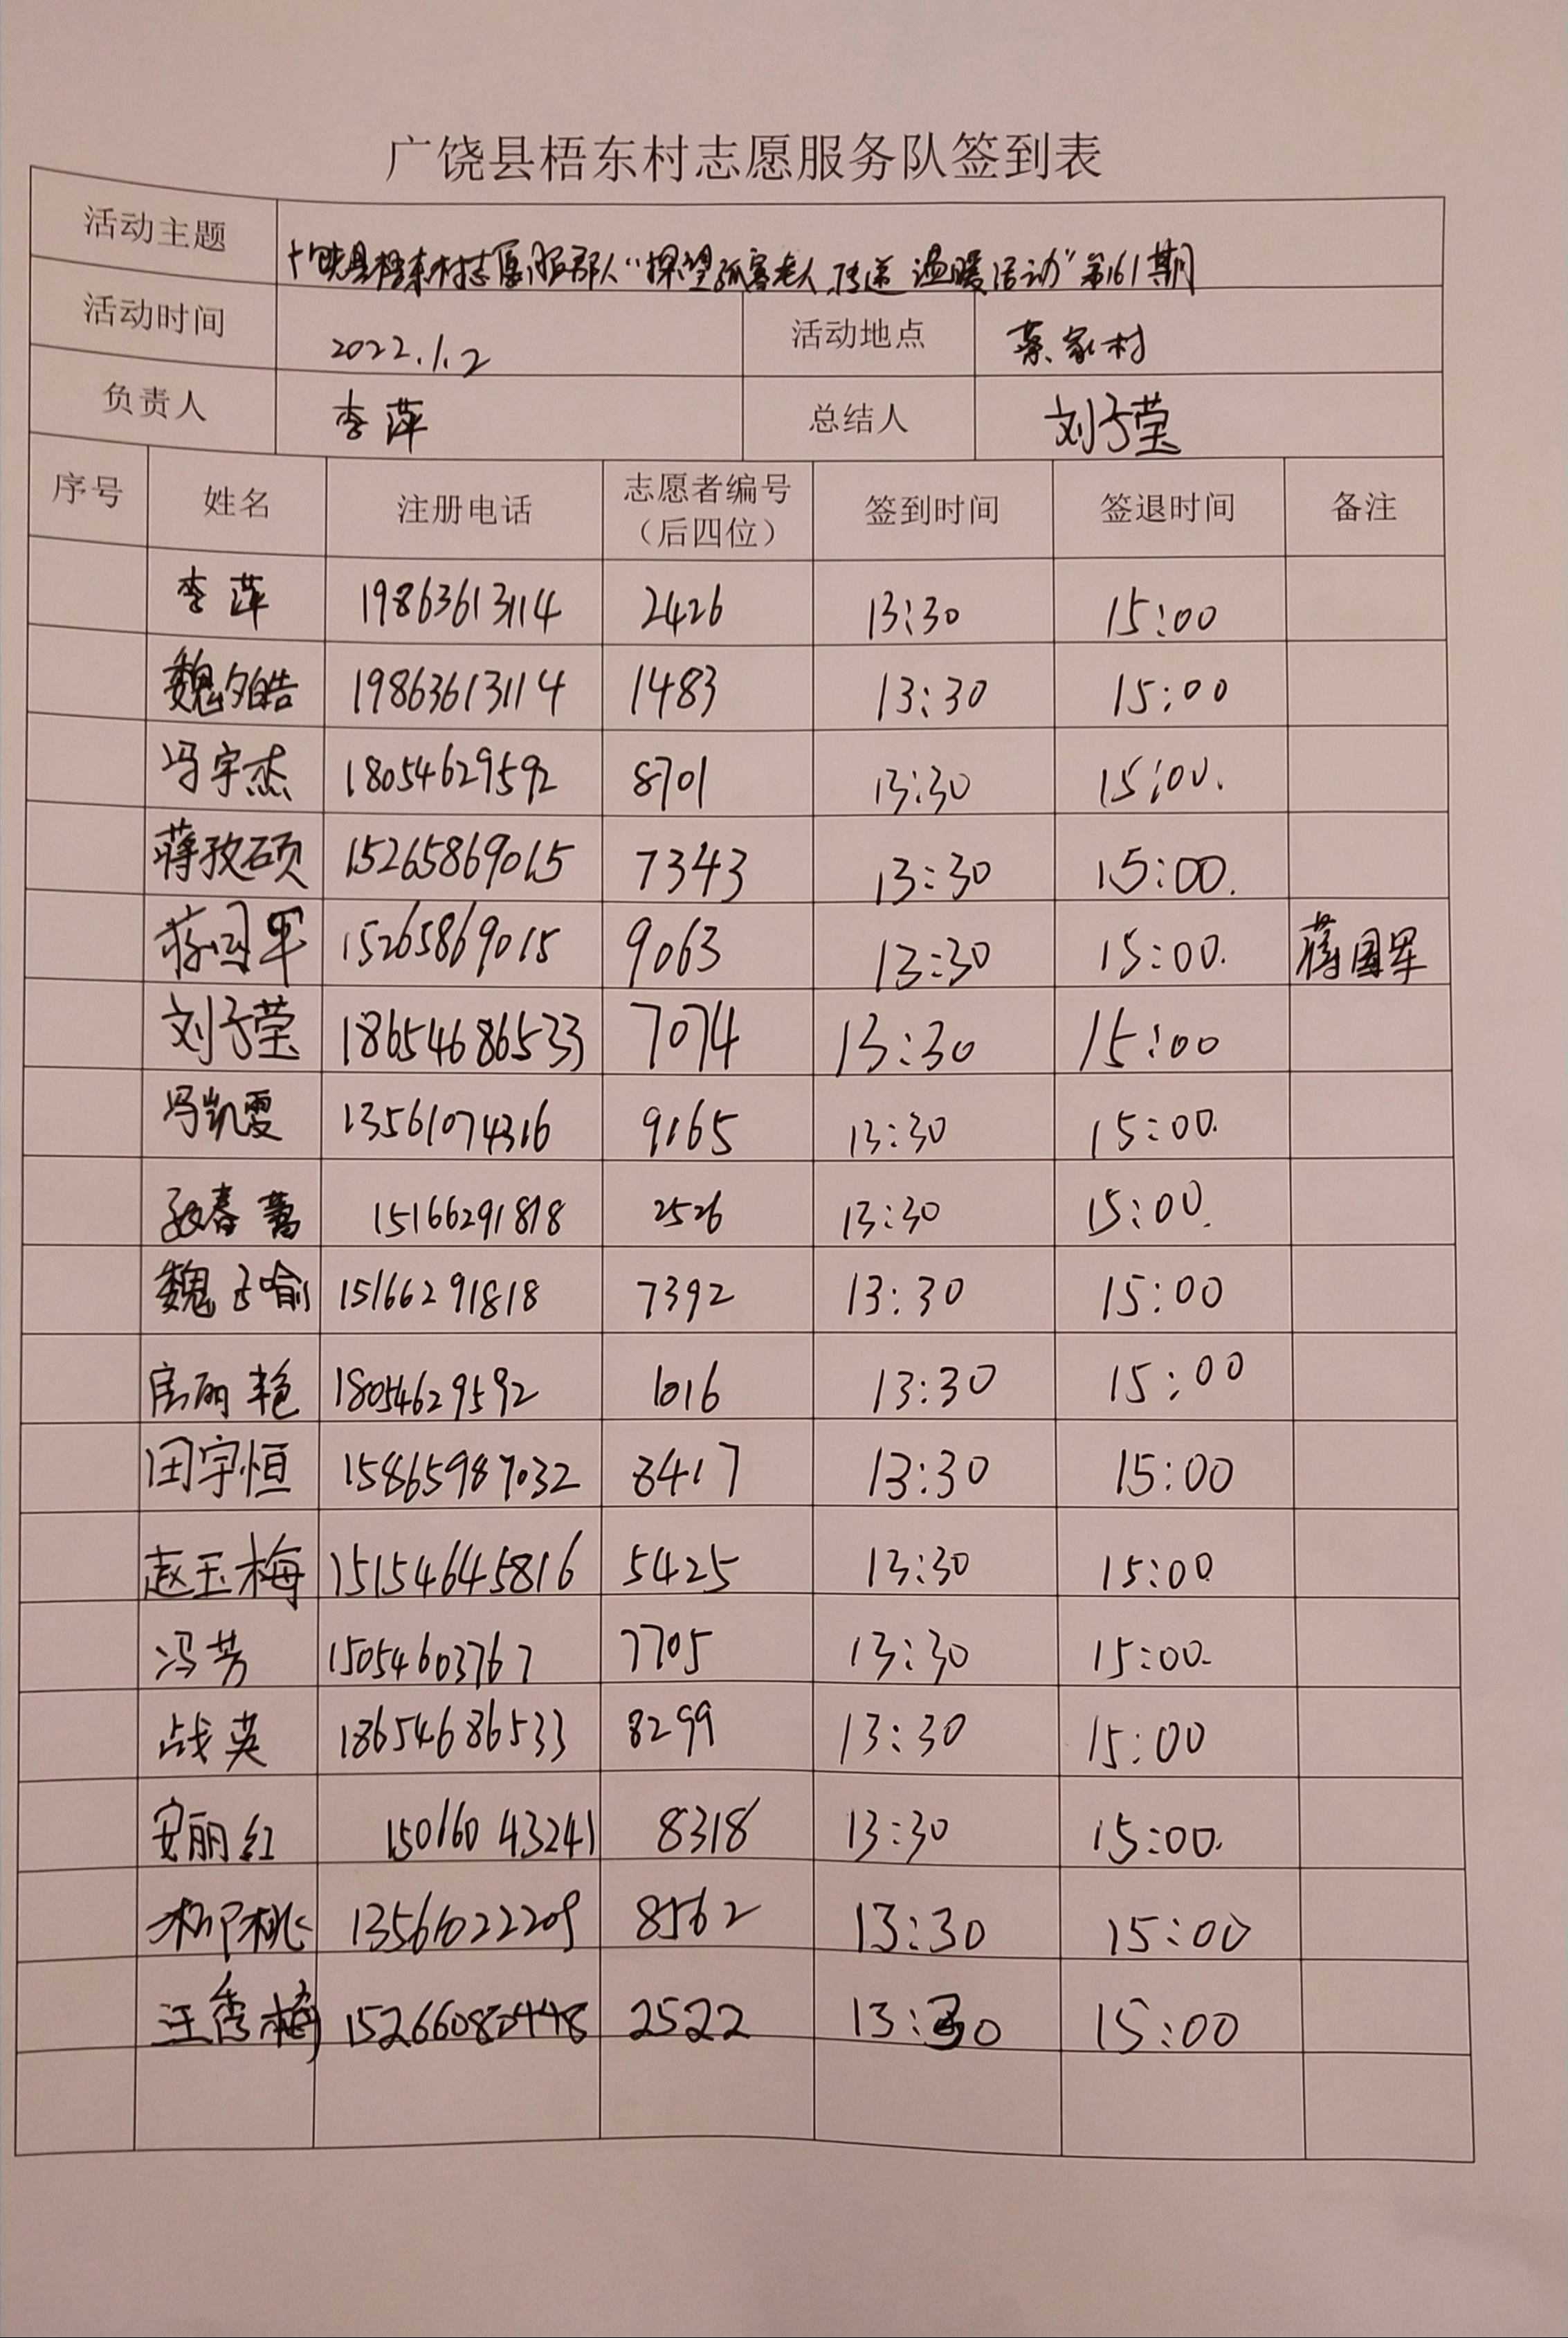 广饶县梧东村志愿服务队签到表
活动主题 广饶县梧东村志愿服务队"探望孤寡老人,传递温暖活动"第161期
活动时间 2022.1.2 活动地点 蔡家村
负责人 李萍 总结人 刘子莹
序号 姓名 注册电话 志愿者编号（后四位） 签到时间 签退时间 备注
李萍 19863613114 2426 13:30 15:00
魏夕皓 19863613114 1483 13:30 15:00
冯宇杰 18054629592 8701 13:30 15:00.
蒋孜硕 15265869015 7343 13:30 15:00.
蒋国军 15265869015 9063 13:30 15:00. 蒋国军
刘子莹 18654686533 7074 13:30 15:00
冯凯雯 13561074316 9165 13:30 15:00.
春 15166291818 2526 13:30 15:00.
魏子喻 15166291818 7392 13:30 15:00
房丽艳 18054629592 1016 13:30 15:00
田宇恒 15865987032 8417 13:30 15:00
赵玉梅 15154645816 5425 13:30 15:00
冯芳 15054603767 7705 13:30 15:00.
战英 18654686533 8299 13:30 15:00
安丽红 15016043241 8318 13:30 15:00.
柳桃 13561022209 8562 13:30 15:00
汪秀梅 2522 13:30 15:00